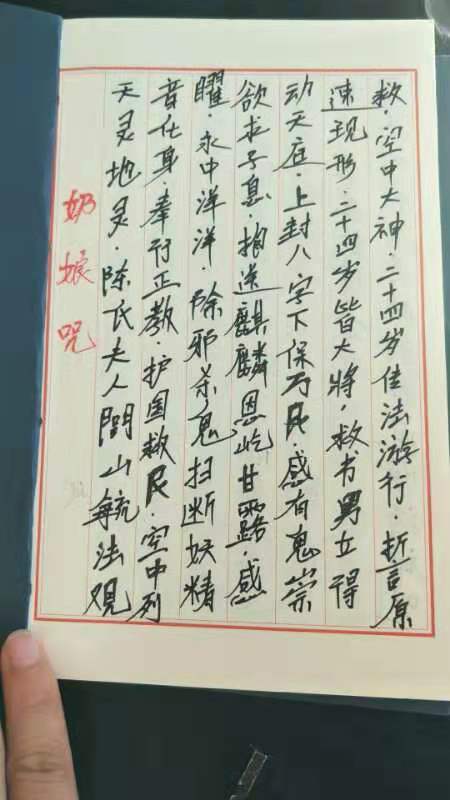 奶娘咒
天灵地灵·陈氏夫人閭山毓法观
音化身·奉行正教·护国救民·空中列
曜·永中洋洋·除邪杀鬼扫断妖精
欲求子息·抱送麒麟恩屹甘露·感
动天庭·上封八字下保万民·感有鬼祟
速现形·二十四岁皆大将·救书男立得
救·空中大神·二十四岁佳法游行·折言原